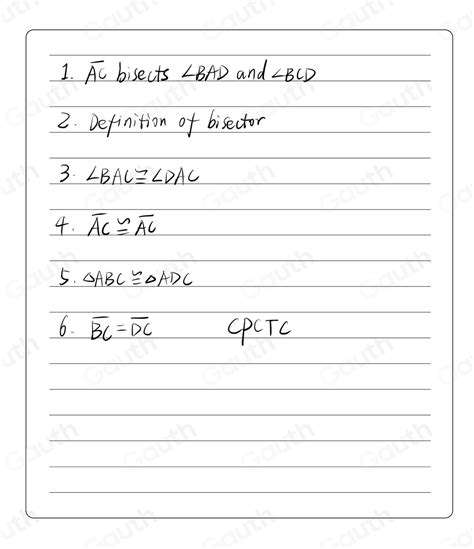 1. A̅C̅ bisects ∠BAD and ∠BCD
2. Definition of bisector
3. ∠BAC≅∠DAC
4. A̅C̅ ≅ A̅C̅
5. △ABC ≅ △ADC
6. B̅C̅ = D̅C̅ CPCTC